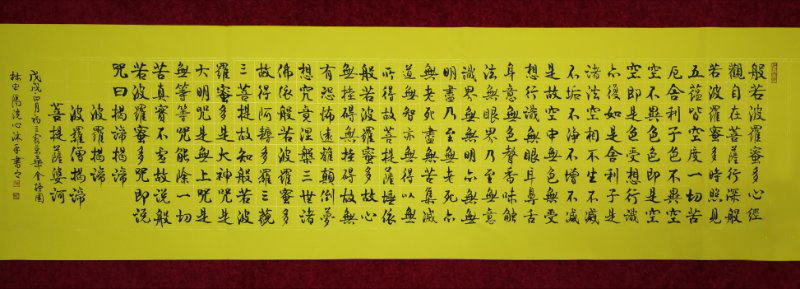 般若波羅蜜多心經
觀自在菩薩行深般
若波羅蜜多時照見
五蘊皆空度一切苦
厄舍利子色不異空
空不異色色即是空
空即是色受想行識
亦復如是舍利子是
諸法空相不生不滅
不垢不淨不增不減
是故空中無色無受
想行識無眼耳鼻舌
身意無色聲香味觸
法無眼界乃至無意
識界無無明亦無無
明盡乃至無老死亦
無老死盡無苦集滅
道無智亦無得以無
所得故菩提薩埵依
般若波羅蜜多故心
無挂礙無挂礙故無
有恐怖遠離顛倒夢
想究竟涅槃三世諸
佛依般若波羅蜜多
故得阿耨多羅三藐
三菩提故知般若波
羅蜜多是大神咒是
大明咒是無上咒是
無等等咒能除一切
苦真實不虛故說般
若波羅蜜多咒即說
咒曰揭諦揭諦
波羅揭諦
波羅僧揭諦
菩提薩婆訶
戊戌四月初三